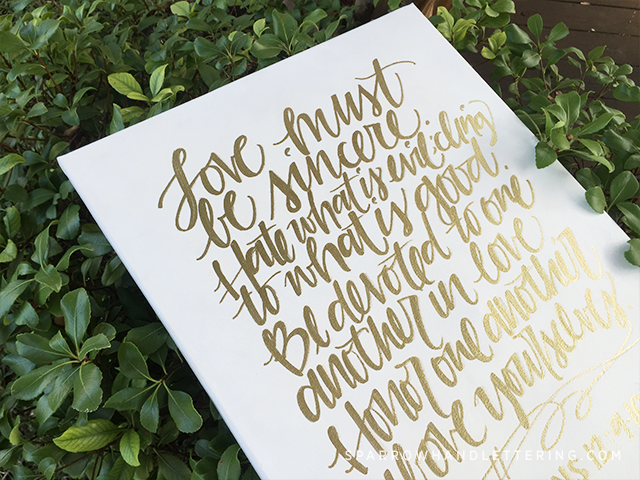 Love must
be sincere.
Hate what is evil; cling
to what is good.
Be devoted to one
another in love
Honor one another
above yourselves
SPARROWHANDLETTERING.COM